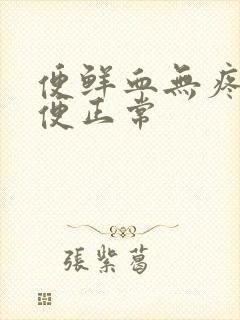 便鲜血無疼
便正常
張紫葛